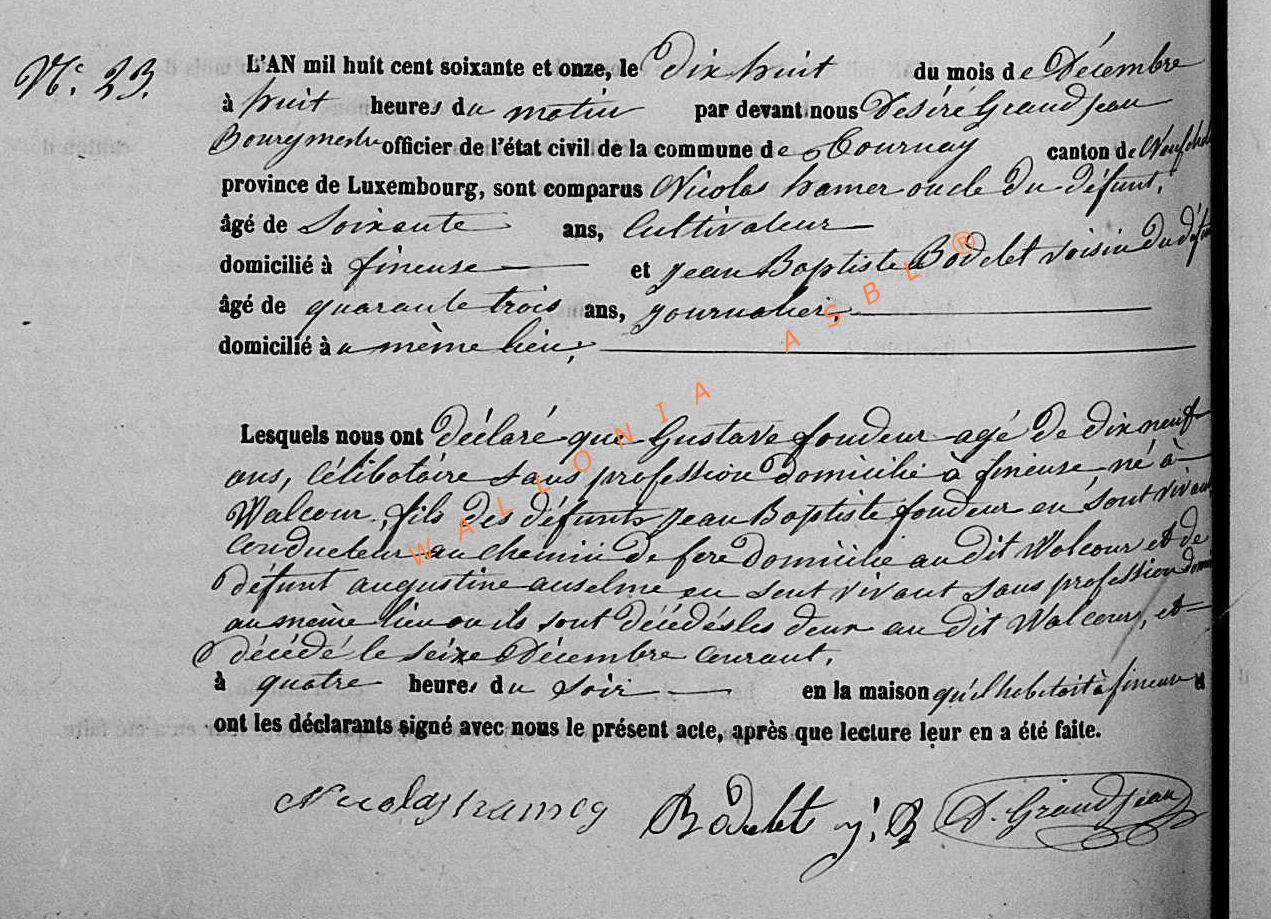 N° 23.
L'AN mil huit cent soixante et onze, le Dix huit du mois de Décembre
à huit heures du matin par devant nous Désiré Grandjean
Bourgmestre officier de l'état civil de la commune de Tournay canton de Neufchat
province de Luxembourg, sont comparus Nicolas hamer oncle du défunt,
âgé de Soixante ans, Cultivateur
domicilié à fineuse et Jean Baptiste Bodelet voisin du défunt
âgé de quarante trois ans, journalier,
domicilié à u même lieu,
Lesquels nous ont déclaré que Gustave fondeur agé de dix neuf
ans, célibataire sans profession domicilié à fineuse né à
Walcour, fils des défunts Jean Baptiste fondeur en sont vivant
conducteur au chemin de fere domicilié au dit Walcour et de
défunt augustine anselme en sont vivant sans profession domi
au même lieu ou ils sont décédés les deux au dit Walcour, et
décédé le seixe Décembre courant,
à quatre heures du soir en la maison qu'il habitait à fineuse et
ont les déclarants signé avec nous le présent acte, après que lecture leur en a été faite.
Nicolas Bodelet J. B D. Grandjean
WALLONIA ASBL ®